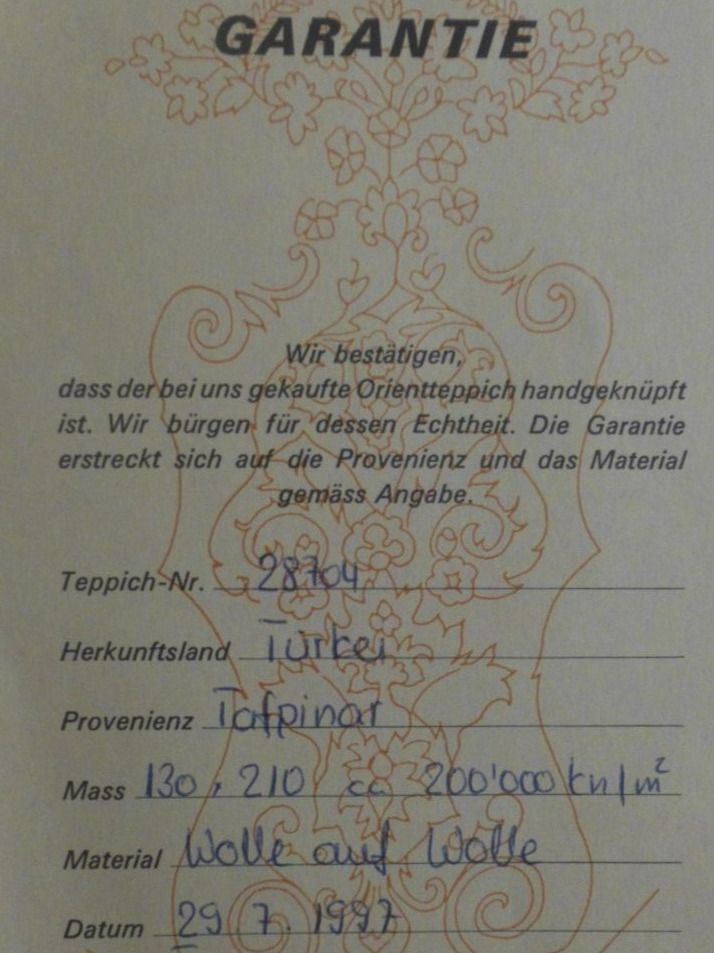 GARANTIE
Wir bestätigen,
dass der bei uns gekaufte Orientteppich handgeknüpft
ist. Wir bürgen für dessen Echtheit. Die Garantie
erstreckt sich auf die Provenienz und das Material
gemäss Angabe.
Teppich-Nr. 28704
Herkunftsland Türkei
Provenienz Tafpinar
Mass 130 x 210 ca 200'000 kn/m²
Material Wolle auf Wolle
Datum 29. 7. 1997